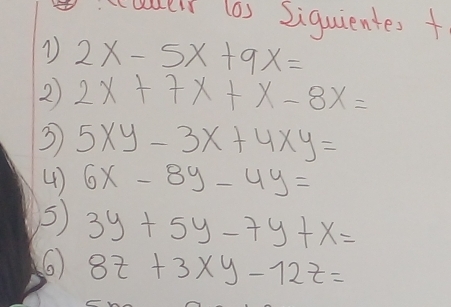 los Siguientes
1) 2x - 5x + 9x =
2) 2x + 7x + x - 8x =
3) 5xy - 3x + 4xy =
4) 6x - 8y - 4y =
5) 3y + 5y - 7y + x =
6) 8z + 3xy - 12z =